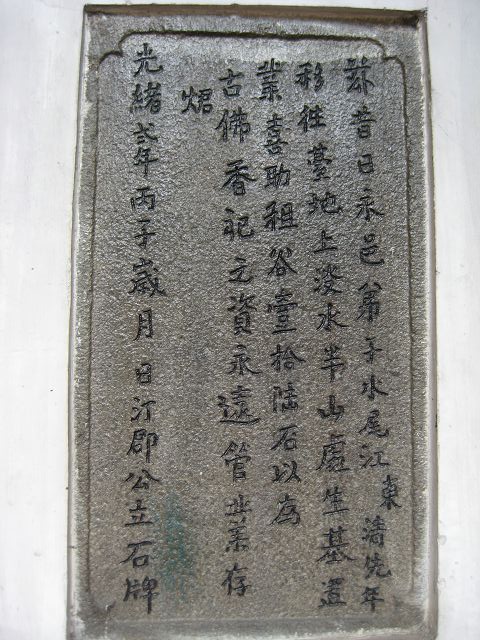 昔日永邑弟子水尾江東濤先年
移徃臺地上淡水半山處生基置
業喜助租谷壹拾陆石以為
古佛香祀之資永遠管业業存
焒
光緒弍年丙子歲月日汀郡公立石牌